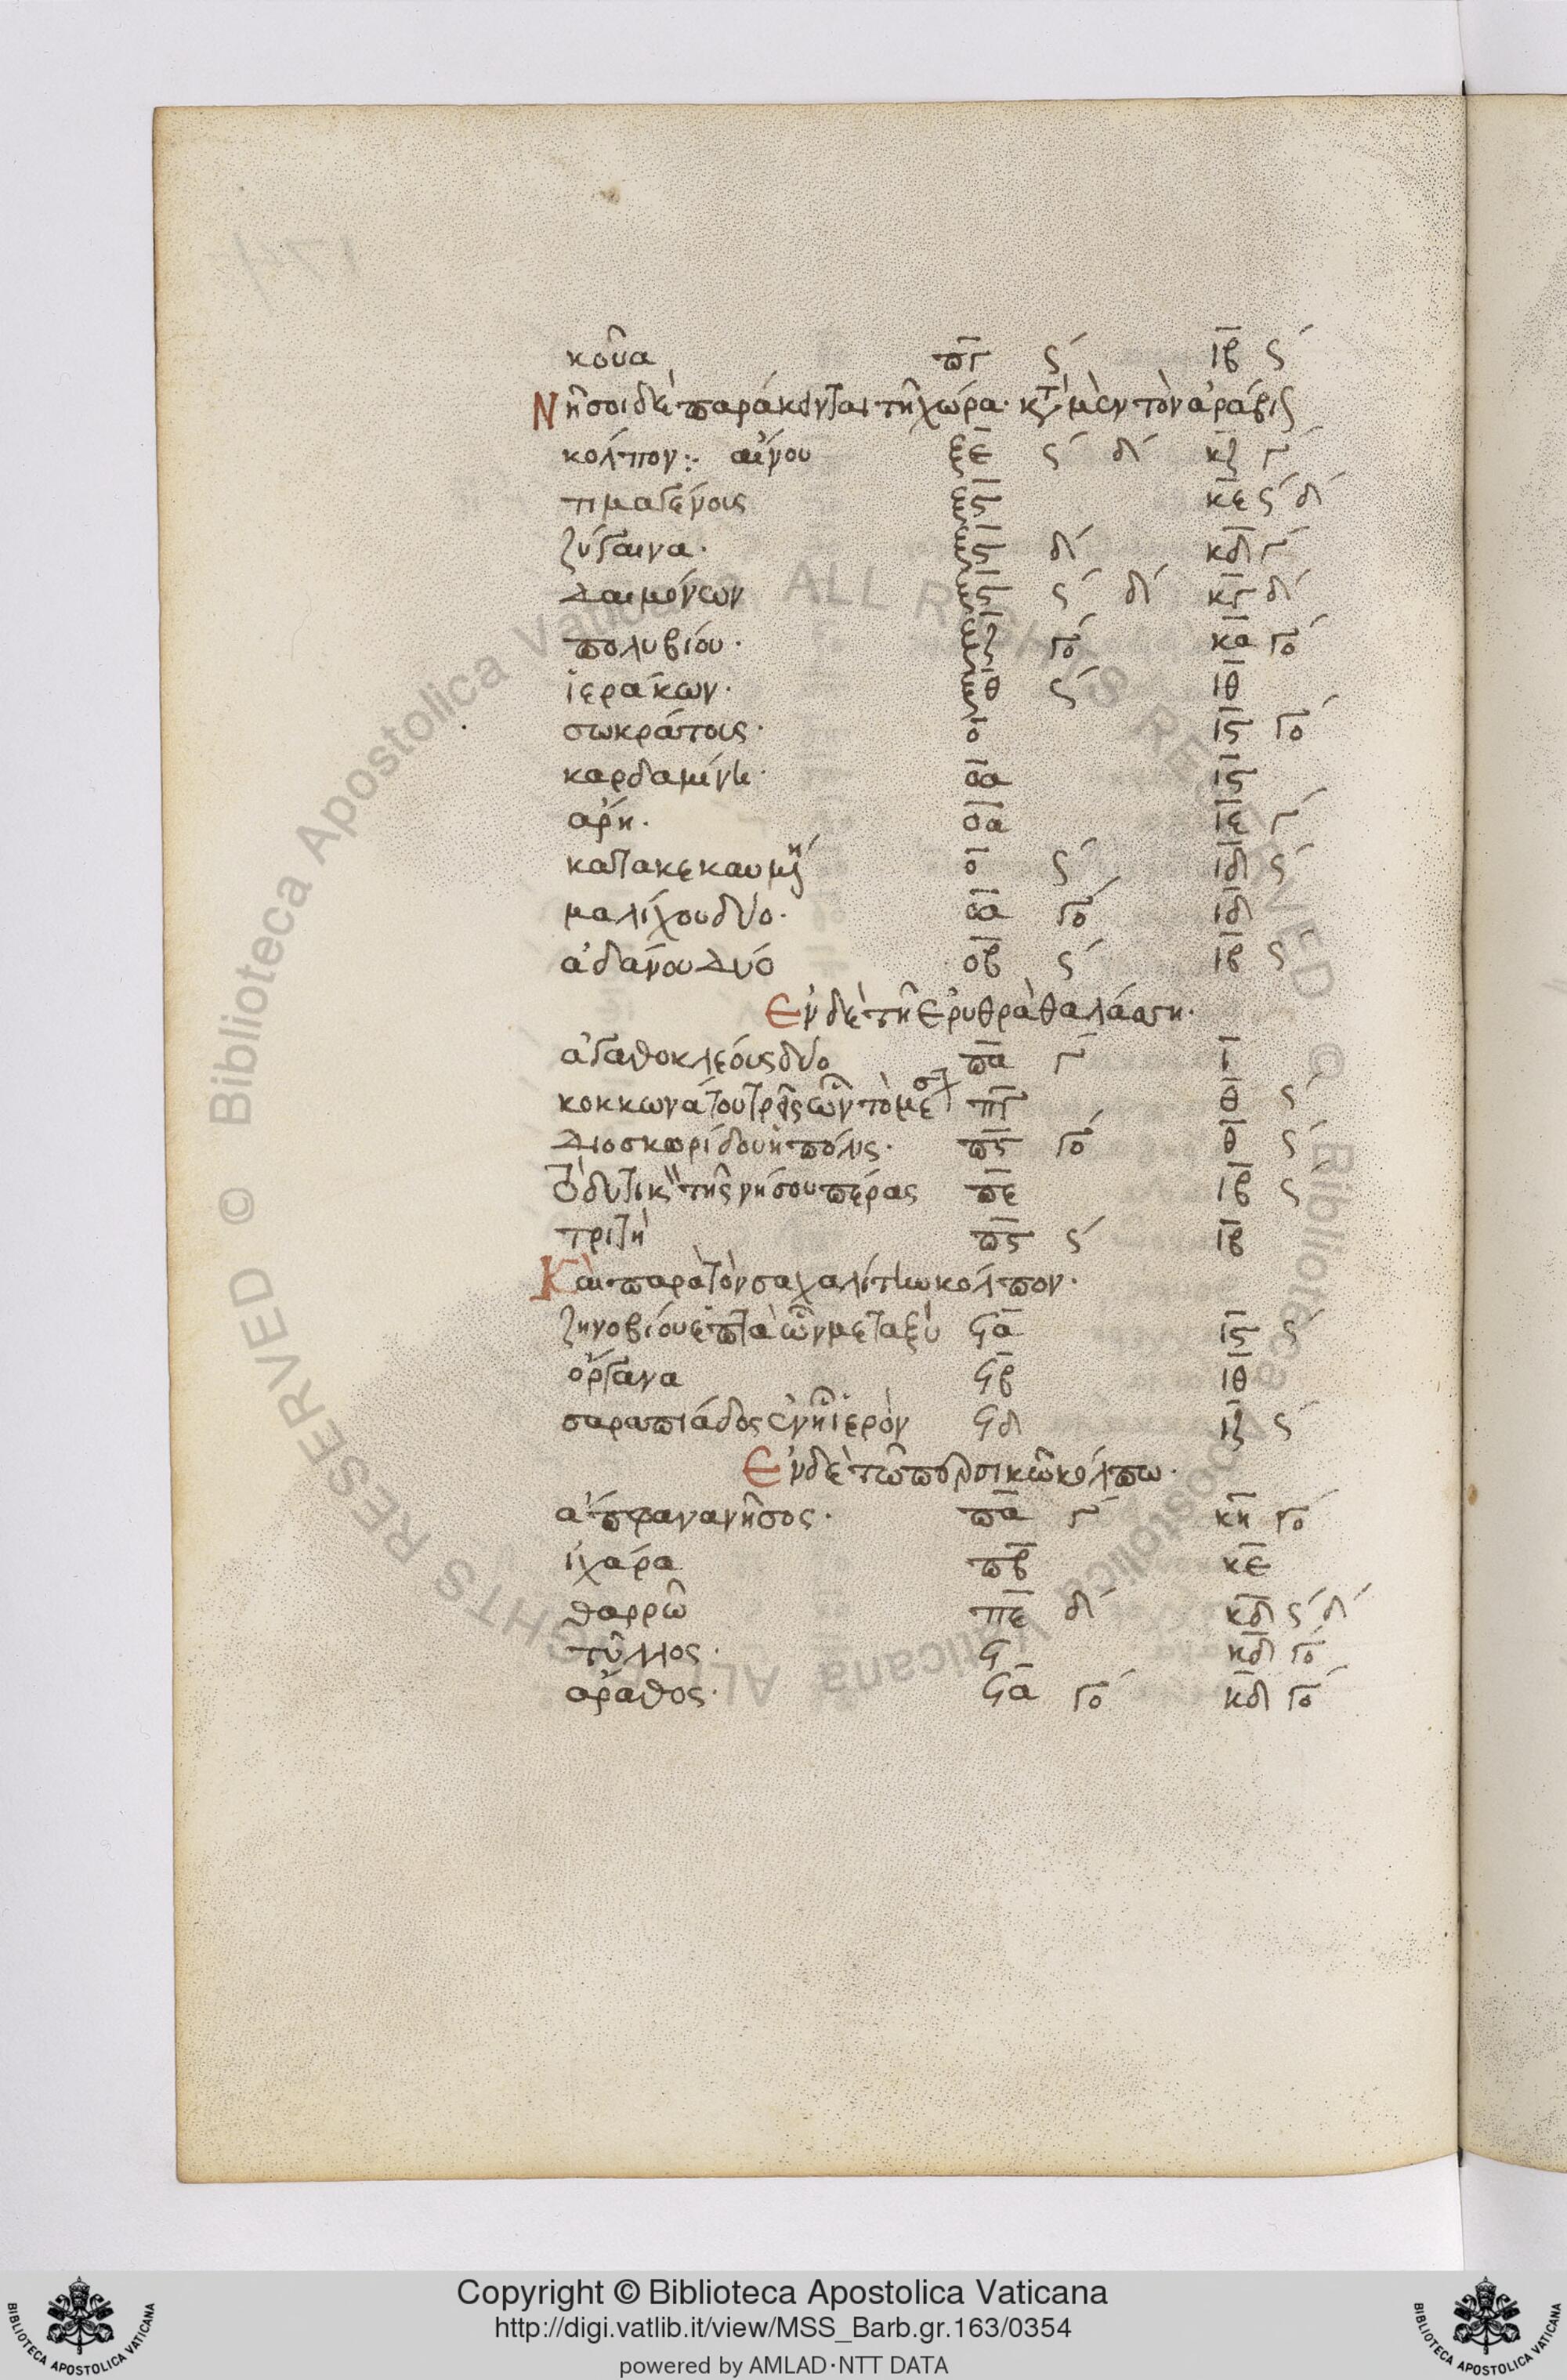 κοῦα πγ ϛʹ ιβ ϛʹ
Νῆσοι δὲ παράκεινται τῆ χώρα· κτ μὲν τὸν ἀράβι
κόλπον: αἴνου ξε ϛʹ δʹ κζ γʹ
τιμαγένους ξϛ κε ϛʹ δʹ
ζύγαινα· ξϛ δʹ κδ γʹ
Δαιμόνων ξϛ ϛʹ δʹ κγ δʹ
πολυβίου· ξζ γοʹ κα γοʹ
ἱεράκων· ξθ ϛʹ ιθ
σωκράτους· ο ιϛ γοʹ
καρδαμίνη· οα ιϛ
ἄρη· οα ιε γʹ
κατακεκαυμένη ο ϛʹ ιδ ϛʹ
μαλίχου δύο· οα γοʹ ιδ
ἀδάνου Δύο οβ ϛʹ ιβ ϛʹ
Ἐν δὲ τῆ ἐρυθρὰ θαλάσση·
ἀγαθοκλέους δύο πα γʹ γ
κοκκωνάτου τρεῖς ὧν τὸ μεσ πγ θ ϛʹ
Διοσκορίδου ἡ πόλις· πϛ γοʹ θ ϛʹ
Τὸ δυτικ τῆς νήσου πέρας πε ιβ ϛʹ
τριτὴ πϛ ϛʹ ιβ
Καὶ παρὰ τὸν σαχαλίτην κόλπον·
ζηνοβίου ἑπτὰ ὧν μεταξὺ ϟα ιϛ ϛʹ
ὄργανα ϟβ ιθ
σαραπιάδος ἐν ἧ ἱερὸν ϟδ ιζ ϛʹ
Ἐν δὲ τῶ περσικῶ κόλπω·
ἀπφανα νῆσος· πα γʹ κη γοʹ
ἰχάρα πβ κε
θαρρῶ πε δʹ κδ ϛʹ δʹ
τῦλλος· ϟ κδ γοʹ
ἄραθος· ϟα γοʹ κδ γοʹ
Biblioteca Apostolica Vaticana ALL RIGHTS RESERVED ©
Copyright © Biblioteca Apostolica Vaticana
http://digi.vatlib.it/view/MSS_Barb.gr.163/0354
powered by AMLAD·NTT DATA
BIBLIOTECA APOSTOLICA VATICANA
BIBLIOTECA APOSTOLICA VATICANA